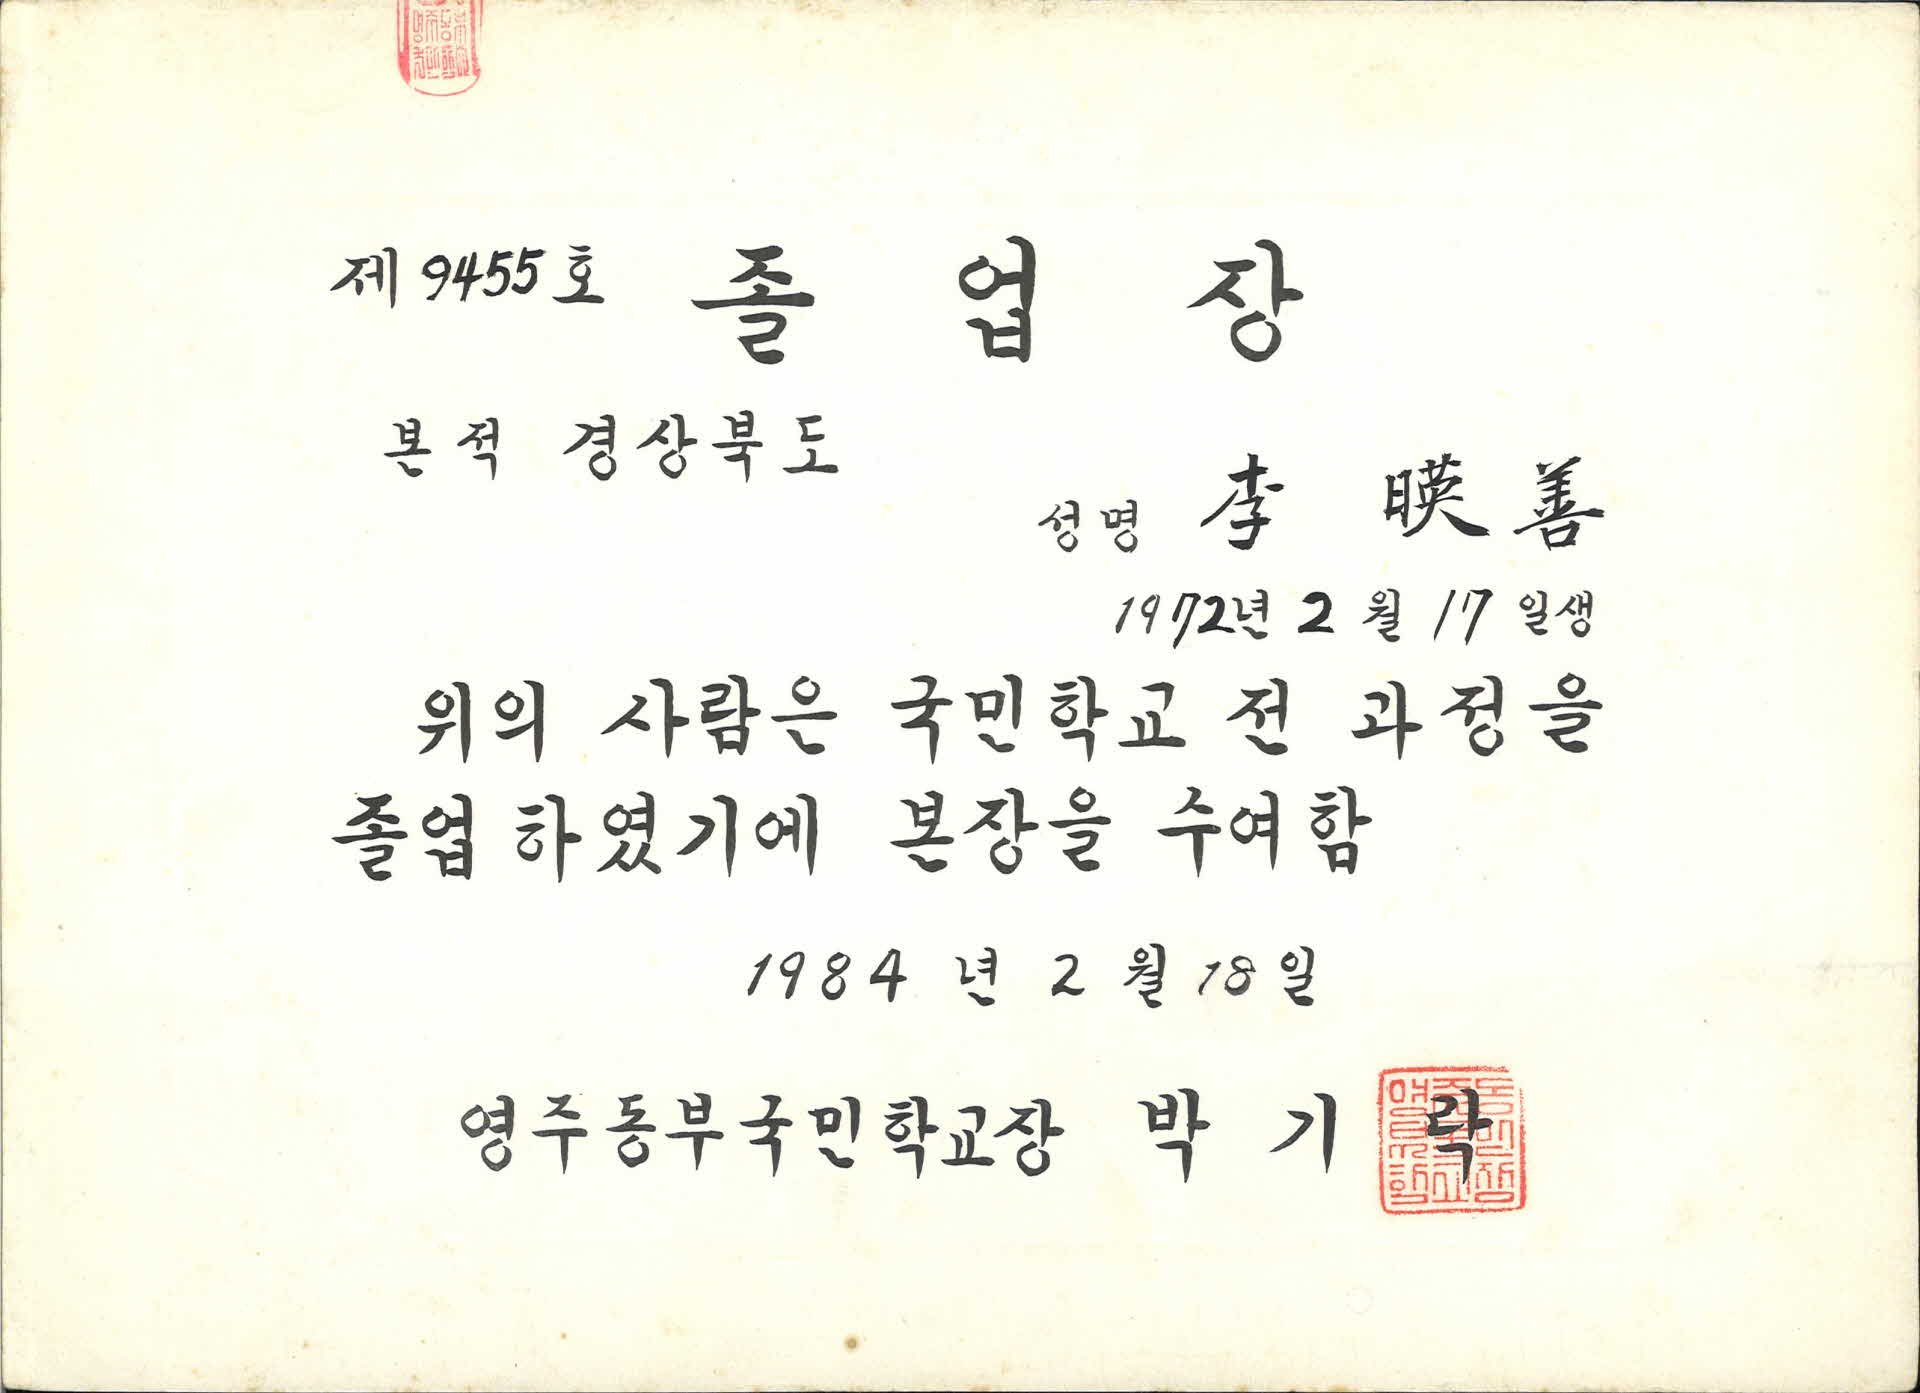 제 9455 호 졸 업 장
본적 경상북도
성명 李 暎 善
1972년 2 월 17 일생
위의 사람은 국민학교 전 과정을
졸업하였기에 본장을 수여함
1984 년 2 월 18 일
영주동부국민학교장 박 기 락